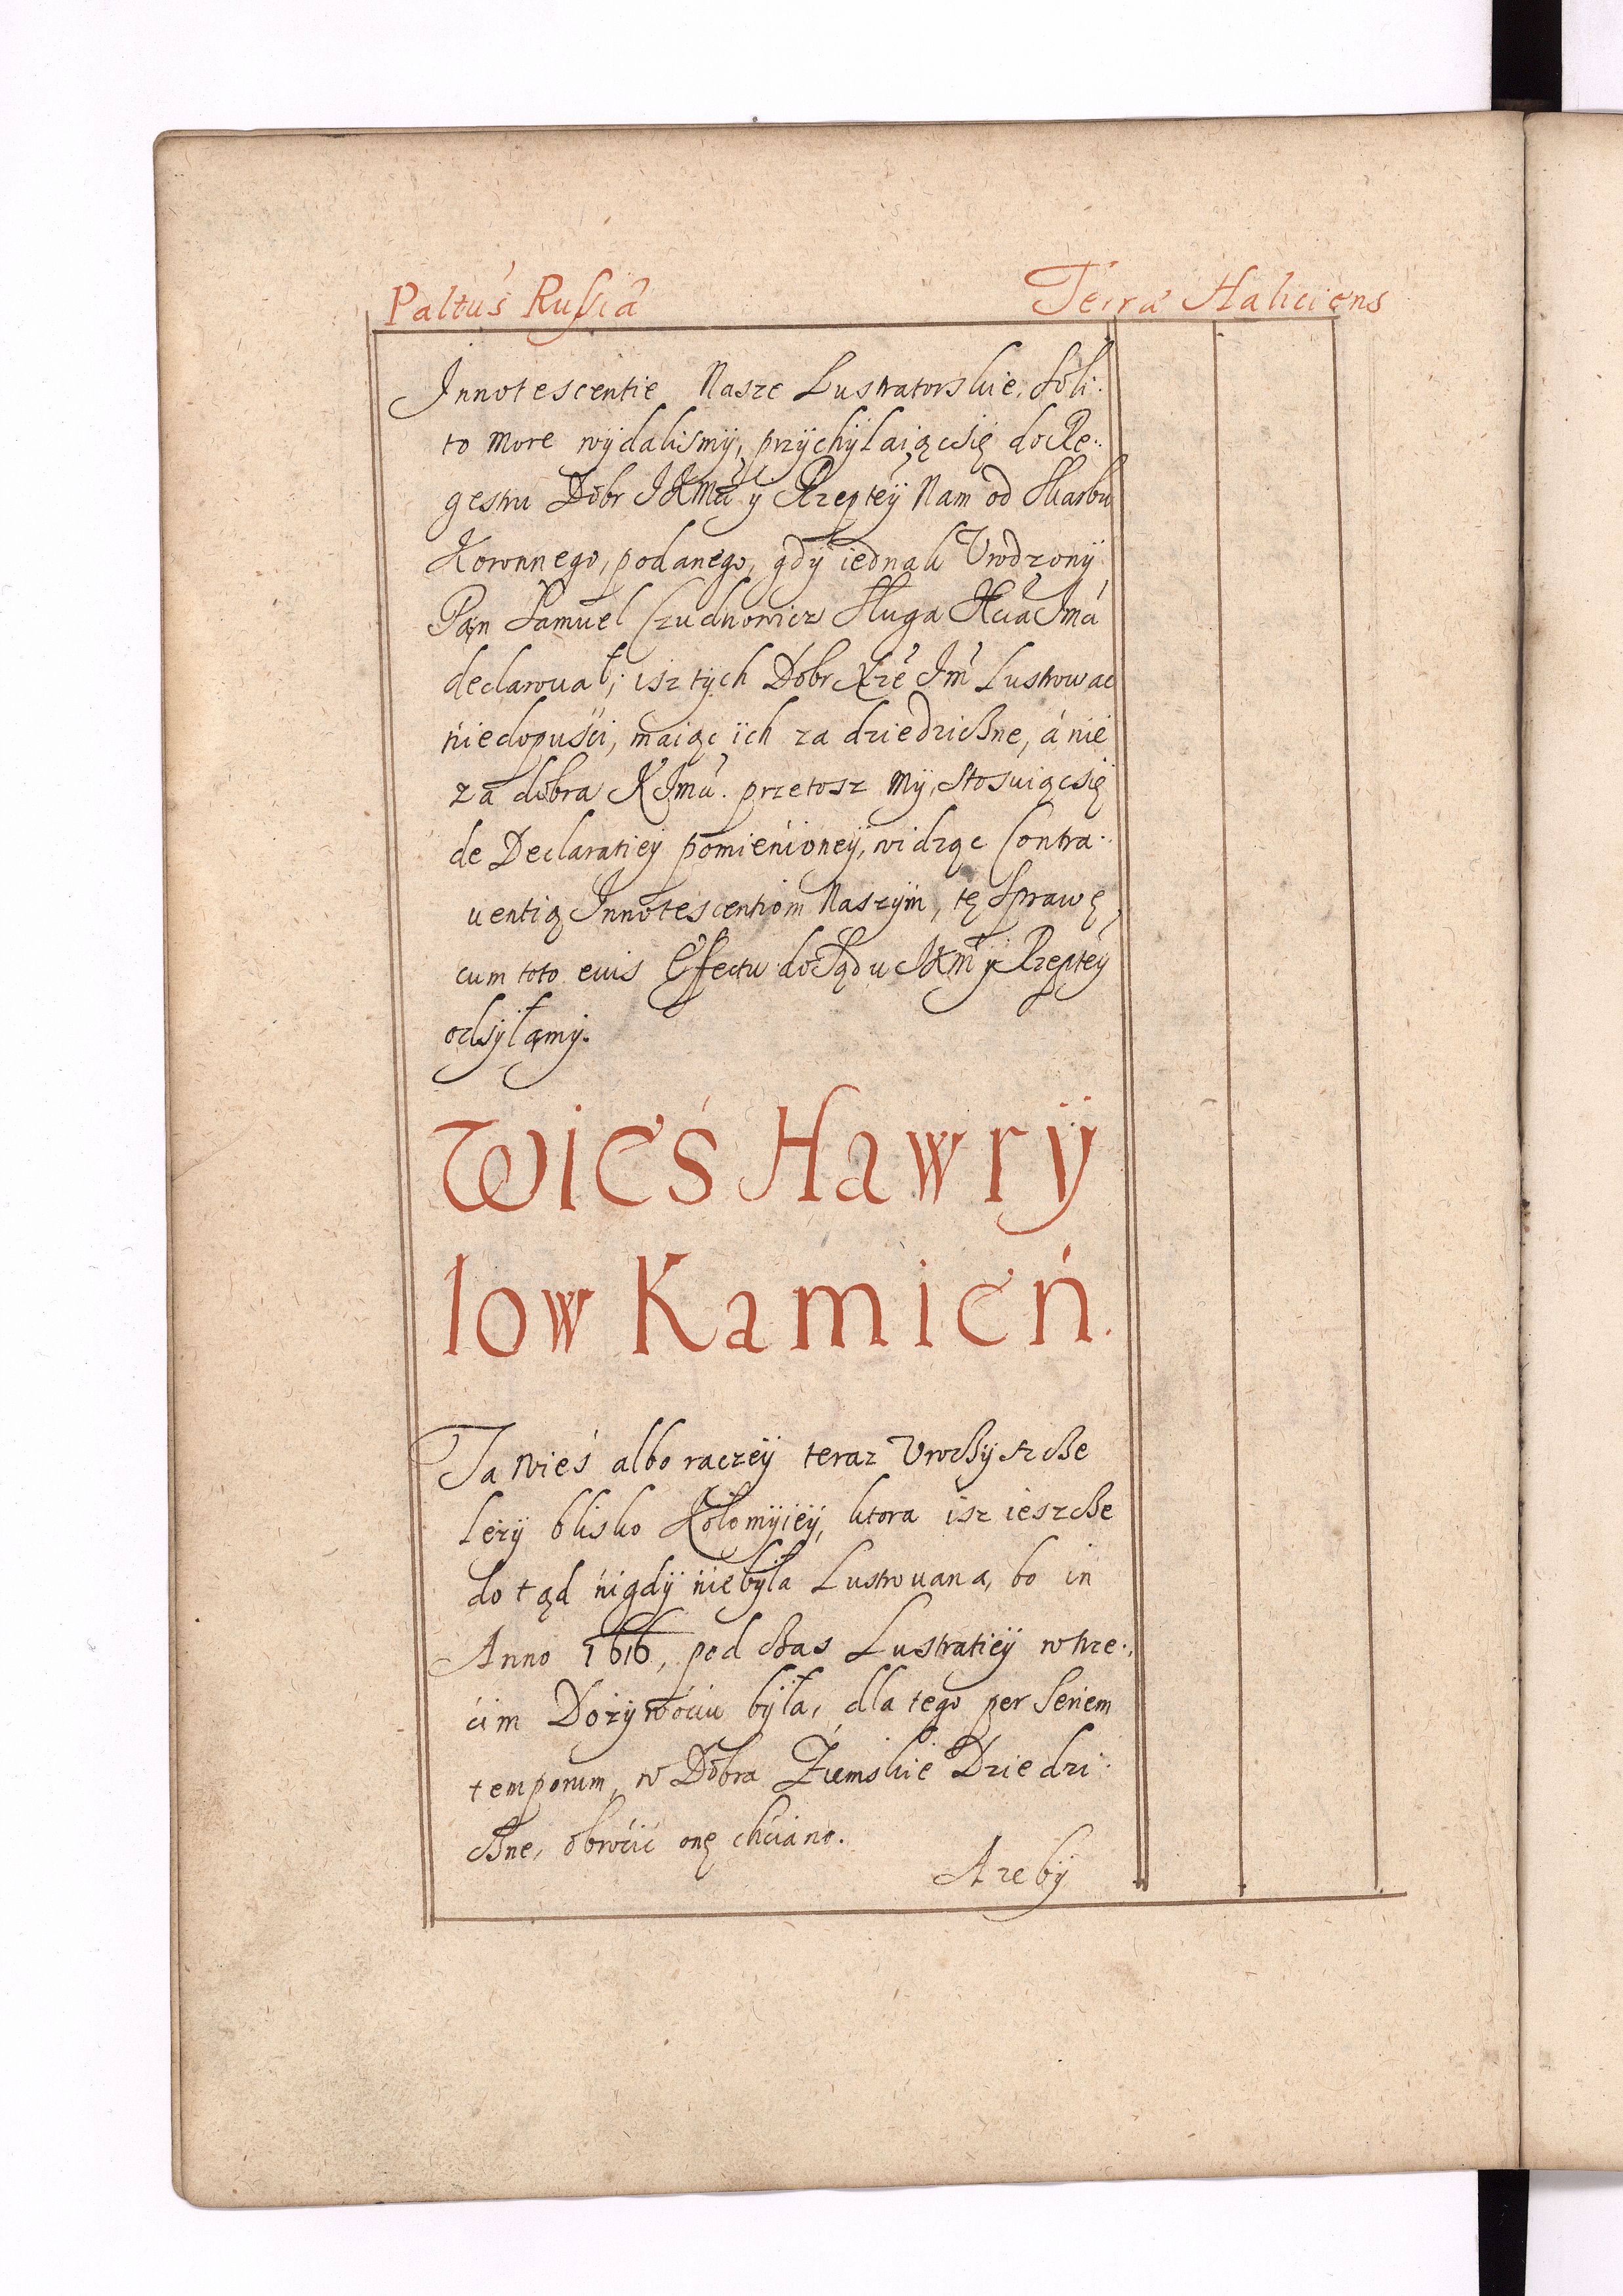 Paltus Russiæ Terræ Haliciens
Innotescentie Nasze Lustratorskie, Soli-
to more wÿdalismÿ, przÿchÿlaiącsię do Re-
gestru Dobr JKMci ÿ Rzeptey Nam od Skarbu
Koronnego, podanego, gdÿ iednak Vrodzonÿ
Pan Samuel Czudnowicz Sługa XciaJmci
declarował; isz tÿch Dobr Xże Jm Lustrowac
niedopuści, maiąc ich za dziedziczne, á nie
za dobra KJmci. przetosz mÿ, Stosuiącsię
de Declaratiey pomienioneÿ, widząc Contra-
uentią Innotescentiom Naszÿm, tę Sprawę,
cum toto euis Effectu do Sądu JKMci ÿ Rzeptey
odsÿłamÿ.
Wieś Hawrÿ
low Kamień.
Ta Wieś albo raczeÿ teraz Vroczÿszcze
leżÿ blisko Kołomÿieÿ, ktora isz ieszcze
dotąd nigdÿ niebÿła Lustrouana, bo in
Anno 1616, pod czas Lustratieÿ w trze-
cim Dożÿwociu bÿła, dla tego per Seriem
temporum, w Dobra Ziemskie Dziedzi-
czne, obrocić onę chciano.
Azebÿ